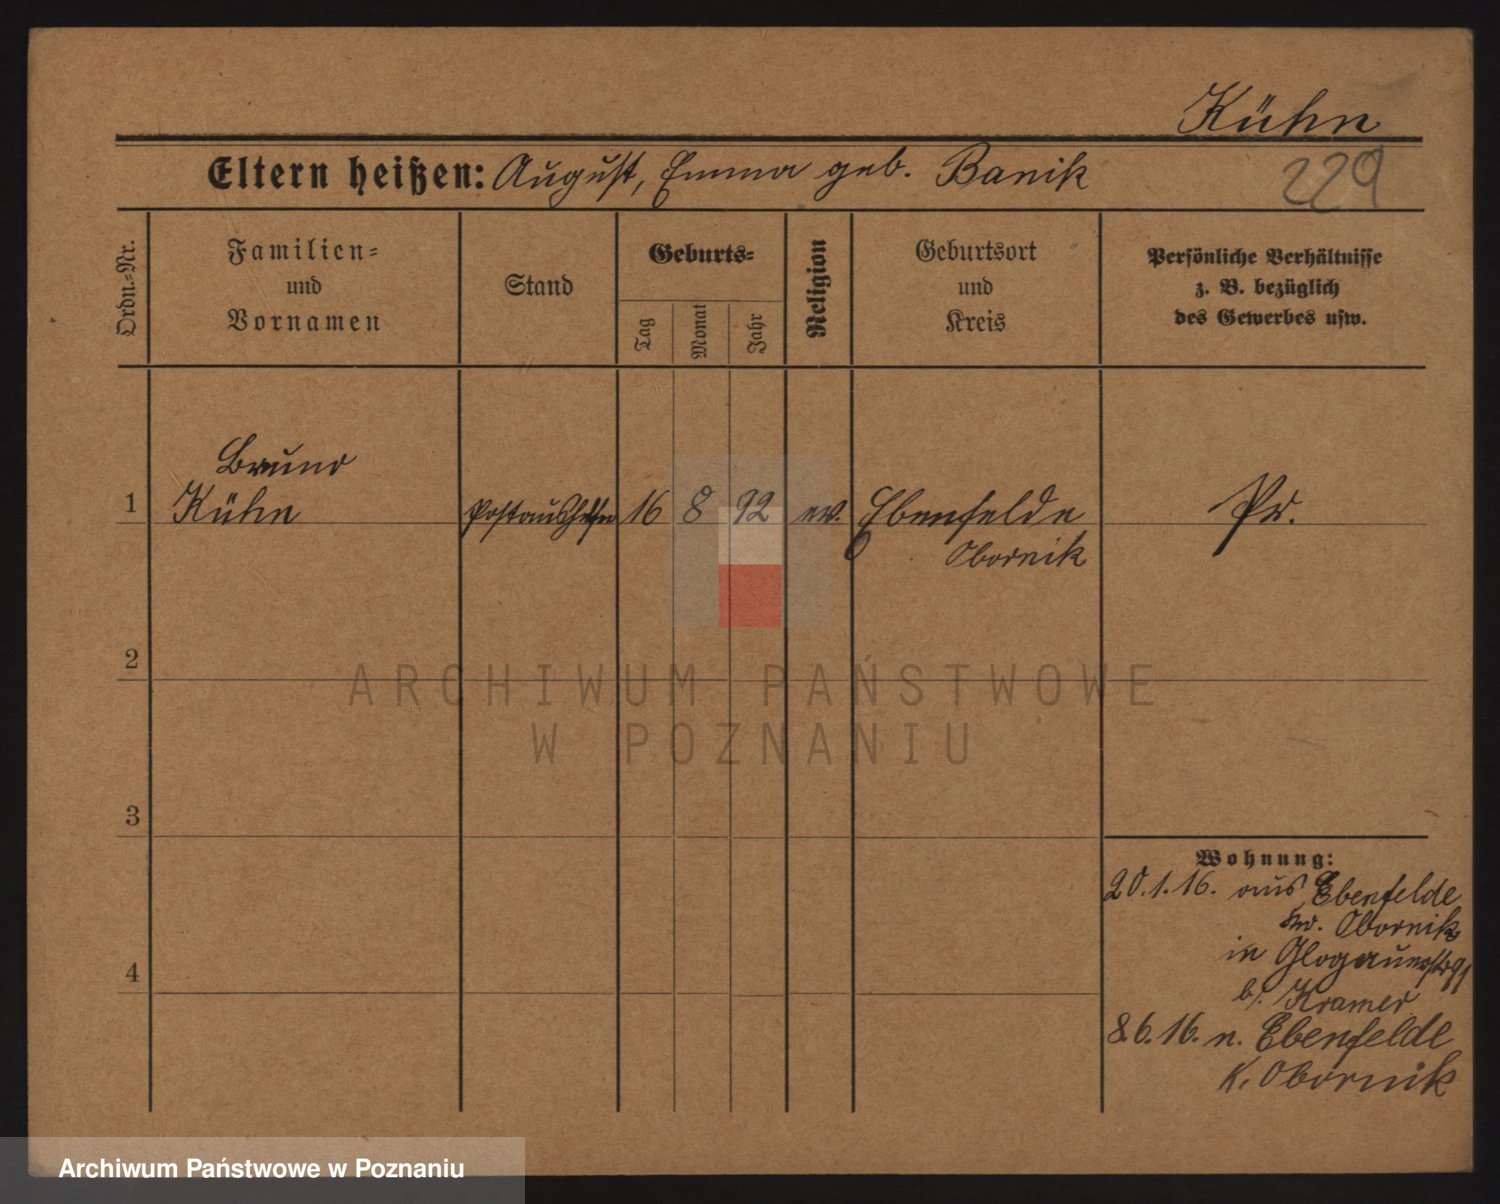 Kühn
Eltern heißen: August, Emma geb. Banik
229
Ordn.-Nr.
Familien-
und
Vornamen
Stand
Geburts-
Tag
Monat
Jahr
Religion
Geburtsort
und
Kreis
Persönliche Verhältnisse
z. B. bezüglich
des Gewerbes usw.
Bruno
1 Kühn Postaushelfer 16 8 92 ev. Ebenfelde Pr.
Obornik
2
ARCHIWUM PAŃSTWOWE
W POZNANIU
3
Wohnung:
20.1.16. aus Ebenfelde
Obornik
in Glogauerstr 91
b/. Kramer
4
8.6.16. n. Ebenfelde
K. Obornik
Archiwum Państwowe w Poznaniu